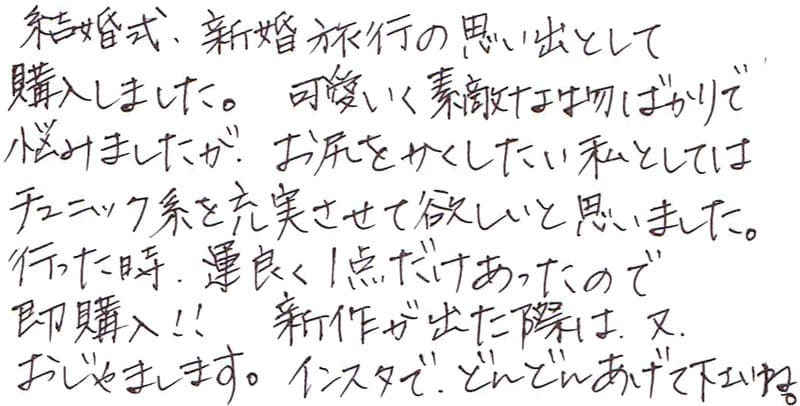 結婚式、新婚旅行の思い出として
購入しました。 可愛いく素敵な物ばかりで
悩みましたが、お尻をかくしたい私としては
チュニック系を充実させて欲しいと思いました。
行った時、運良く1点だけあったので
即購入!! 新作が出た際は、又、
おじゃまします。インスタで、どんどんあげて下さいね。